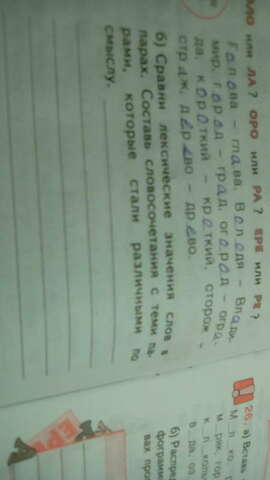 ОЛО или ЛА? ОРО или РА? ЕРЕ или РЕ?
Голова – глава, Володя – Влади-
мир, город – град, огород – огра-
да, короткий – кроткий, сторож –
страж, дерево – древо.
б) Сравни лексические значения слов в
парах. Составь словосочетания с теми па-
рами, которые стали различными по
смыслу.
26. а) Вставь
М_л_ко,
м_ряк, гор
к_л_коль
в_да, оз
б) Распре
фограмм
вах про